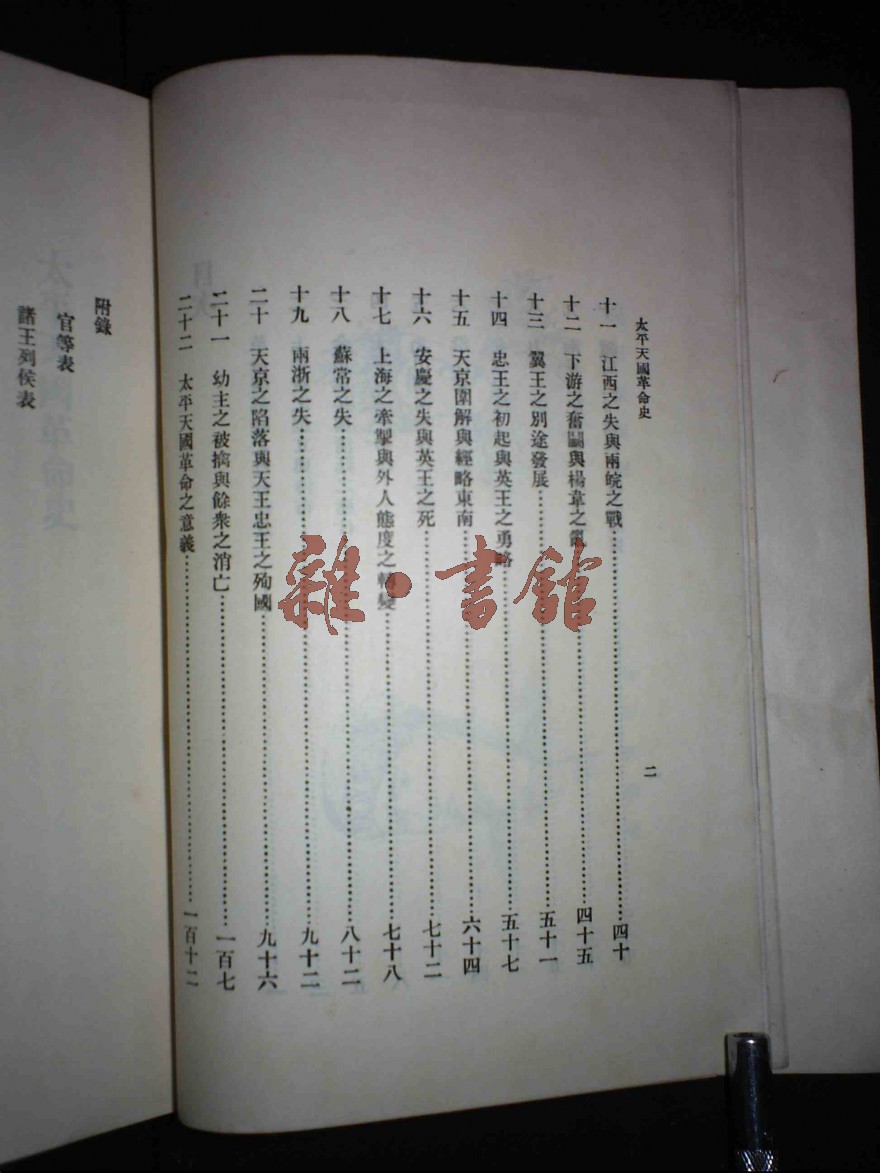 太平天國革命史
二
十一 江西之失與兩皖之戰……四十
十二 下游之奮鬭與楊韋之亂……四十五
十三 翼王之別途發展……五十一
十四 忠王之初起與英王之勇略……五十七
十五 天京圍解與經略東南……六十四
十六 安慶之失與英王之死……七十二
十七 上海之牽掣與外人態度之轉變……七十八
十八 蘇常之失……八十二
十九 兩浙之失……九十二
二十 天京之陷落與天王忠王之殉國……九十六
二十一 幼主之被擒與餘衆之消亡……一百七
二十二 太平天國革命之意義……一百十二
附錄
官等表
諸王列侯表
雜·書館